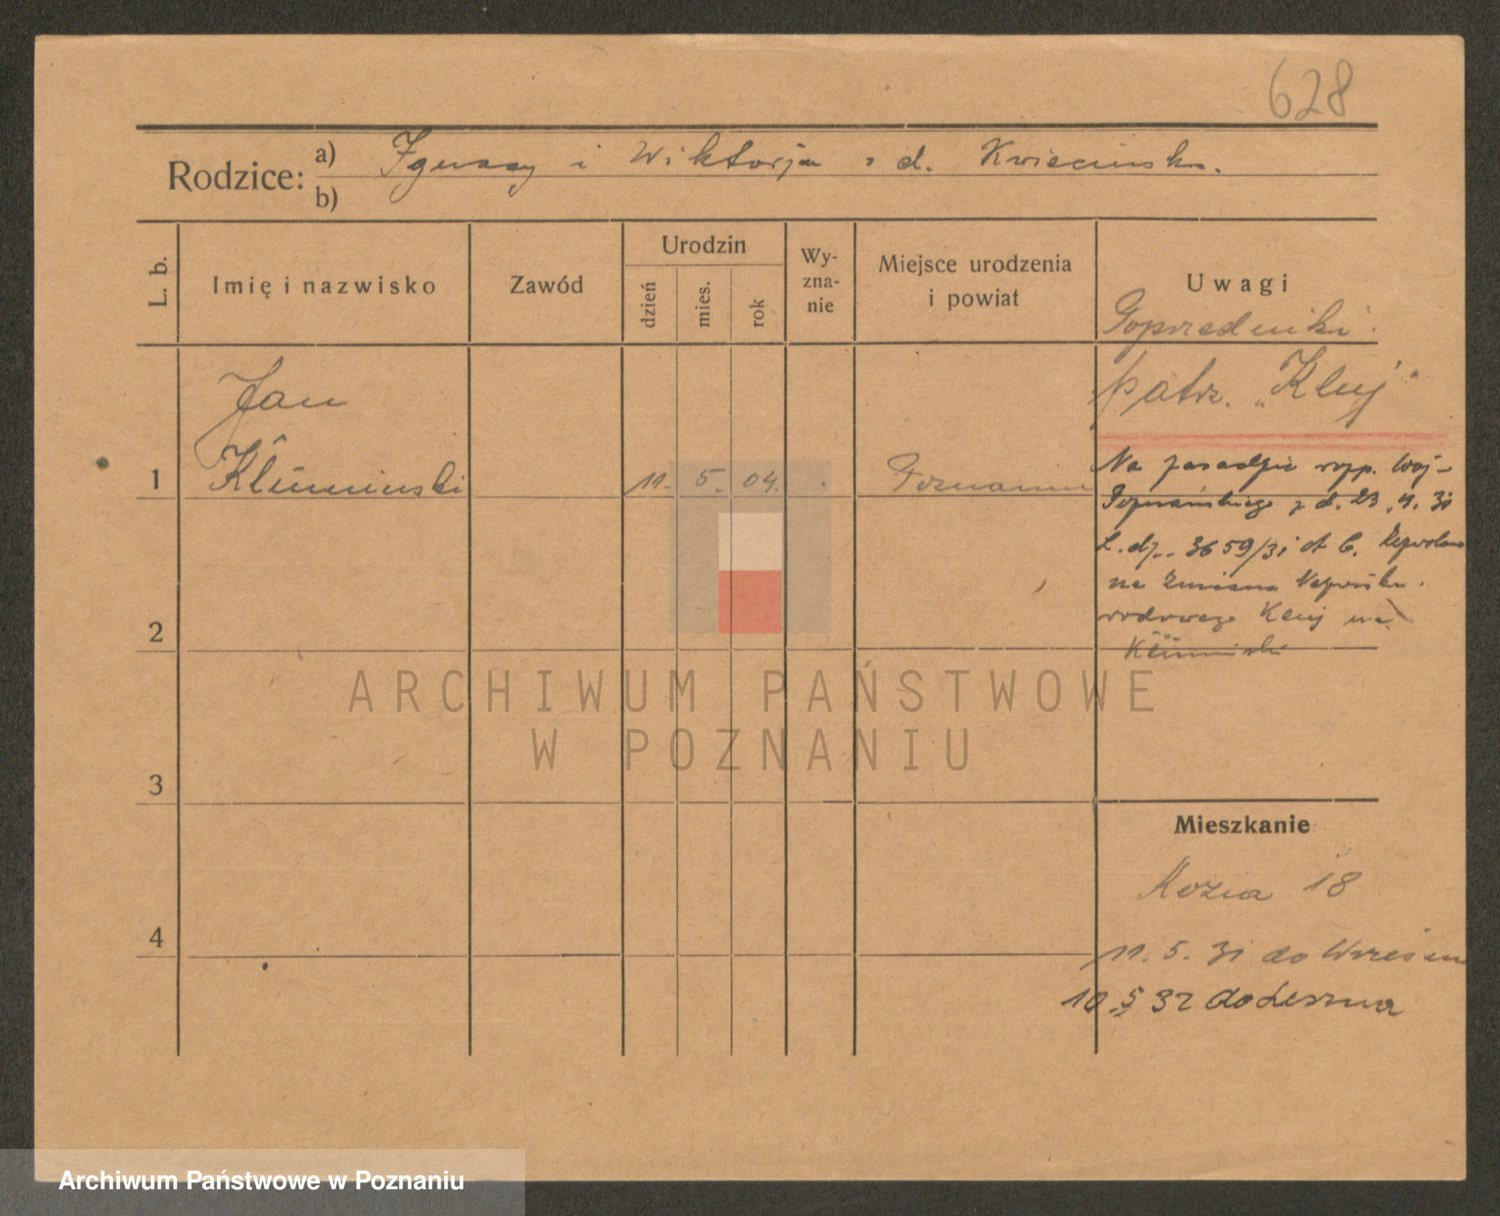 628
Rodzice: a) Ignacy i Wiktorja z d. Kwiecińska.
b)
L. b.
Imię i nazwisko
Zawód
Urodzin
dzień
mies.
rok
Wy-
zna-
nie
Miejsce urodzenia
i powiat
Uwagi
Poprzedniki
patrz. „Kluj"
Jan
1
11. 5. 04.
Na zasadzie rozp. Woj-
Poznańskiego z d. 23. 4. 31
L. dz. 3659/31
na zmianę Nazwiska
rodowego Kluj na
2
ARCHIWUM PAŃSTWOWE
W POZNANIU
3
Mieszkanie
Kozia 18
4
11. 5. 31 do Wrześni
10. 5 32 do Leszna
Archiwum Państwowe w Poznaniu